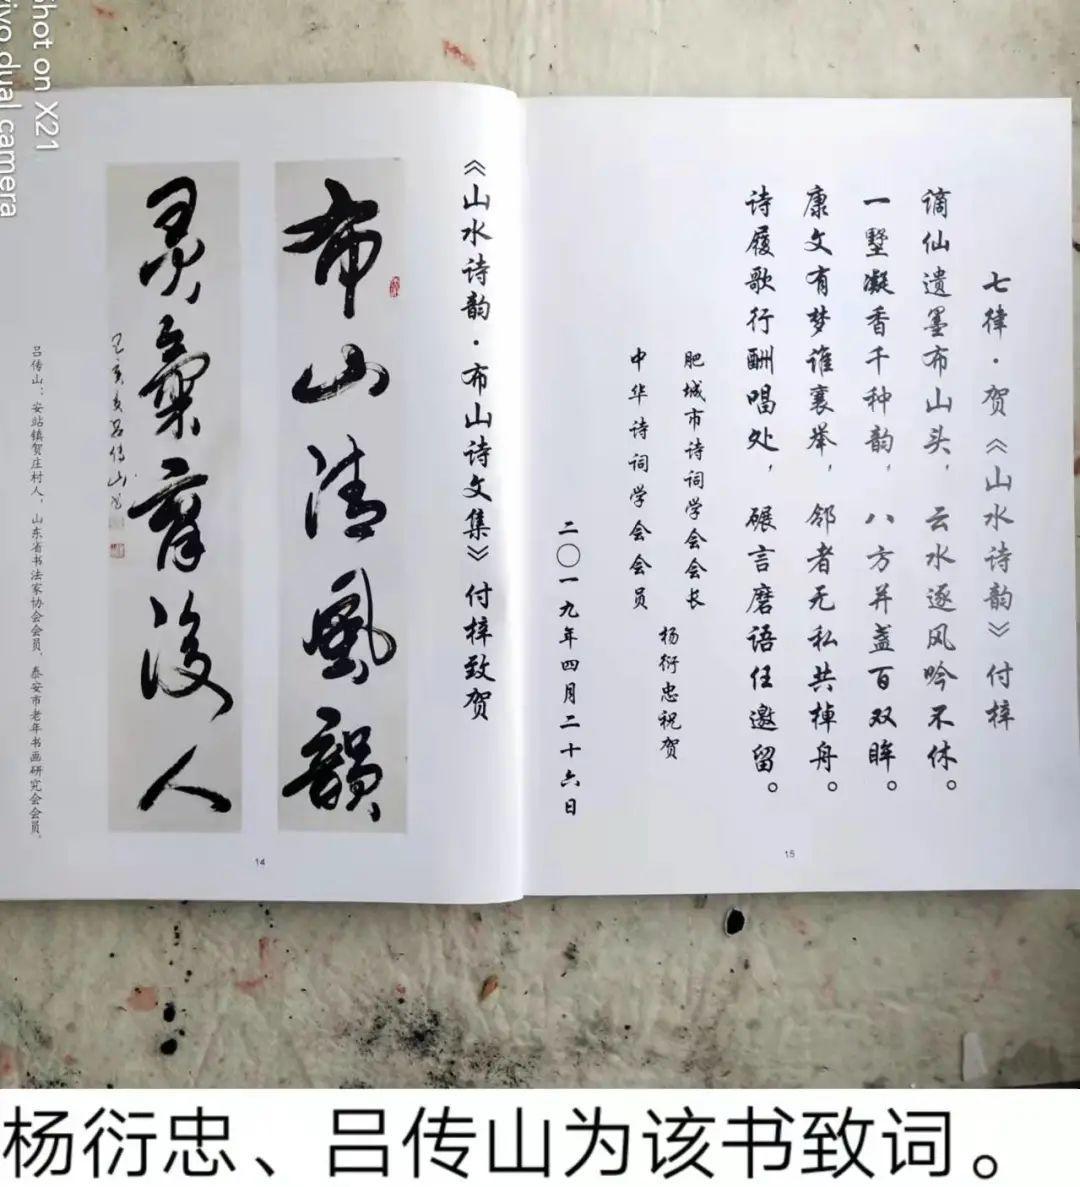 七律·贺《山水诗韵》付梓
谪仙遗墨布山头，云水逐风吟不休。
一墅凝香千种韵，八方并盏百双眸。
康文有梦谁襄举，邻者无私共棹舟。
诗履歌行酬唱处，碾言磨语任邀留。
肥城市诗词学会会长
中华诗词学会会员
杨衍忠祝贺
二〇一九年四月二十六日
15
《山水诗韵·布山诗文集》付梓致贺
布山清风韵
灵气育后人
己亥春吕传山书
吕传山：安站镇贺庄村人，山东省书法家协会会员，泰安市老年书画研究会会员。
14
Shot on X21
vivo dual camera
杨衍忠、吕传山为该书致词。